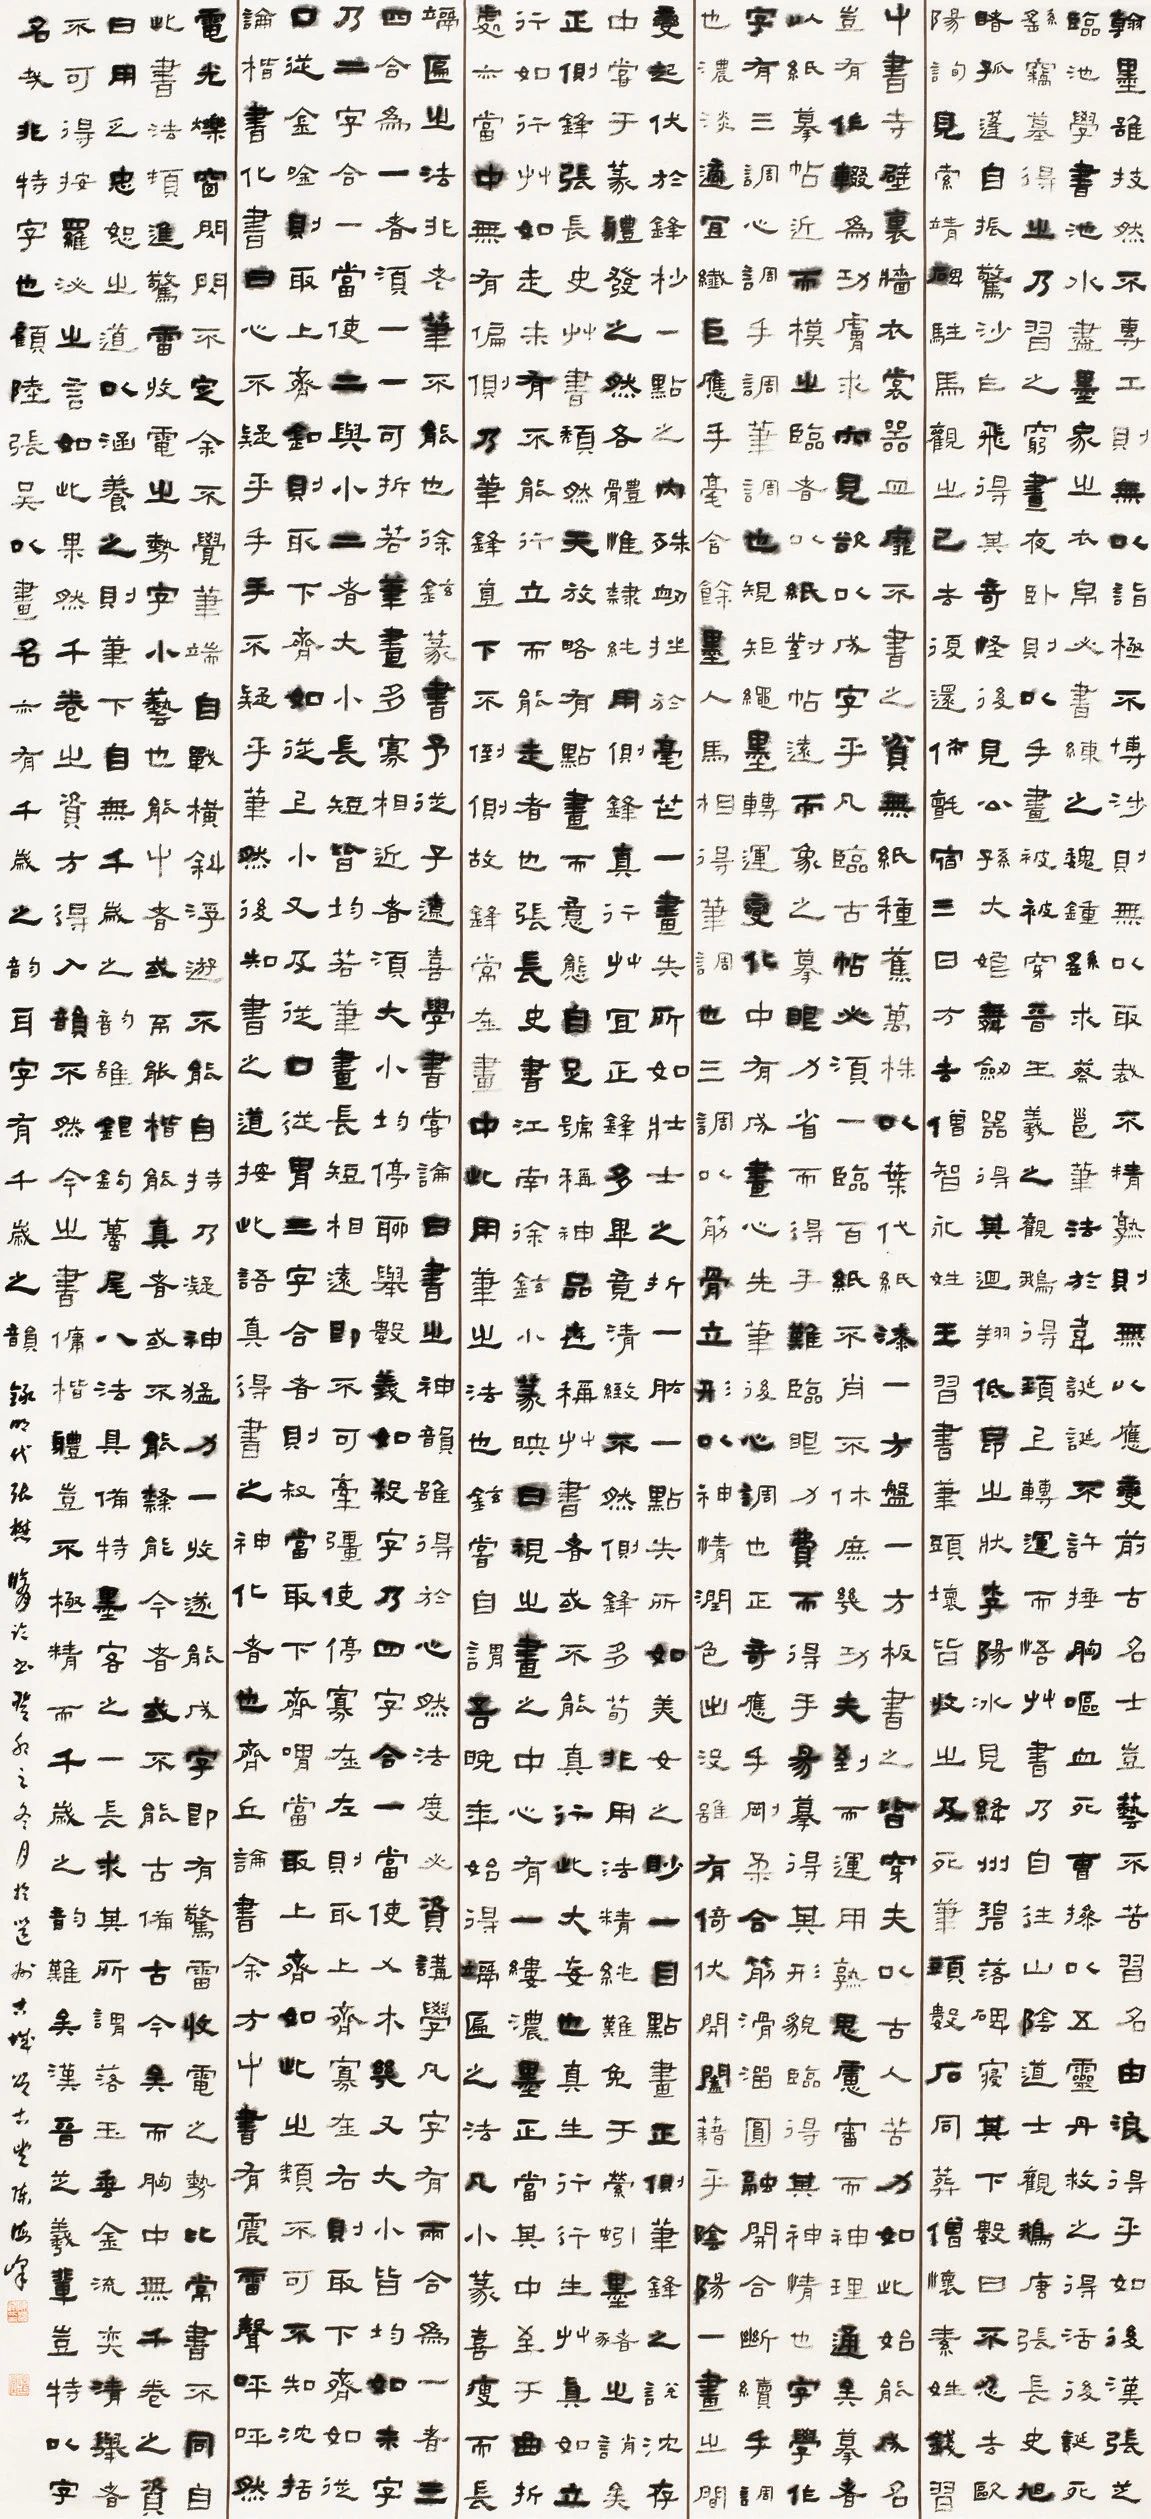 翰墨雖技然不專工則無以詣極不博涉則無以取裁不精熟則無以應變前古名士豈藝不苦習名由浪得乎如後漢張芝
臨池學書池水盡墨家之衣帛必書練之魏鍾繇求蔡邕筆法於韋誕誕不許捶胸嘔血死曹操以五靈丹救之得活後誕死
繇竊墓得之乃習之窮晝夜臥則以手畫被被穿晉王羲之觀鵝得頸上轉運而悟艸書乃自往山陰道士觀鵝唐張長史旭
睹孤蓬自振驚沙白飛得其奇怪後見公孫大娘舞劍器得其迴翔低昂之狀李陽冰見絳州碧落碑寢其下數日不忍去歐
陽詢見索靖碑駐馬觀之已去復還佈氈宿三日方去僧智永姓王習書筆頭壞皆收之及死筆頭數石同葬僧懷素姓錢習
艸書寺壁裏牆衣裳器皿靡不書之資無紙種蕉萬株以葉代紙漆一方盤一方板書之皆穿夫以古人苦力如此始能成名
豈有作輟為功膚求而見欲以成字乎凡臨古帖必須一臨百紙不肖不休庶幾功夫到而運用熟思慮審而神理通矣摹者
以紙摹帖近而模之臨者以紙對帖遠而象之摹眼力省而得手難臨眼力費而得手易摹得其形貌臨得其神情也字學作
字有三調心調手調筆調也規矩繩墨轉運變化中有成畫心先筆後心調也正奇應手剛柔合筋滑溜圓融開合斷續手調
也濃淡適宜纖巨應手毫含餘墨人馬相得筆調也三調以筋骨立形以神情潤色出沒雖有倚伏開闔藉乎陰陽一畫之間
變起伏於鋒杪一點之內殊衄挫於毫芒一畫失所如壯士之折一肱一點失所如美女之眇一目點畫正側筆鋒之說沈存
中嘗于篆體發之然各體惟隸純用側鋒真行艸宜正鋒多畢竟清緻不然側鋒多苟非用法精純難免于縈蚓墨豬之誚矣
正側鋒張長史艸書頹然天放略有點畫而意態自足號稱神品世稱艸書者或不能真行此大妄也真生行行生艸真如立
行如行艸如走未有不能行立而能走者也張長史書江南徐鉉小篆映日視之畫之中心有一縷濃墨正當其中至于曲折
處亦當中無有偏側乃筆鋒直下不倒側故鋒常在畫中此用筆之法也鉉嘗自謂吾晚年始得竵匾之法凡小篆喜瘦而長
竵匾之法非老筆不能也徐鉉篆書予從子遼喜學書嘗論曰書之神韻雖得於心然法度必資講學凡字有兩合為一者三
四合為一者須一一可拆若筆畫多寡相近者須大小均停聊舉數義如殺字乃四字合一當使乂木几又大小皆均如未字
乃二字合一當使二與小二者大小長短皆均若筆畫長短相遠即不可牽彊使停寡在左則取上齊寡在右則取下齊如從
口從金唫則取上齊釦則取下齊如從上小又及從口從胃三字合者則叔當取下齊喟當取上齊如此之類不可不知沈括
論楷書化書曰心不疑乎手手不疑乎筆然後知書之道按此語真得書之神化者也齊丘論書余方艸書有震雷聲呯呯然
電光爍窗閃閃不定余不覺筆端自戰橫斜浮遊不能自持乃凝神猛力一收遂能成字即有驚雷收電之勢比常書不同自
此書法頓進驚雷收電之勢字小藝也能艸者或不能楷能真者或不能隸能今者或不能古備古今矣而胸中無千卷之資
曰用乏忠恕之道以涵養之則筆下自無千歲之韵雖銀鉤蠆尾八法具備特墨客之一長求其所謂落玉垂金流奕清舉者
不可得按羅泌之言如此果然千卷之資方得入韻不然今之書傭楷體豈不極精而千歲之韵難矣漢晉芝羲輩豈特以字
名哉非特字也顧陸張吳以畫名亦有千歲之韵耳字有千歲之韻 錄明代張懋脩論書癸卯之冬月於邕州古城古陳海峰